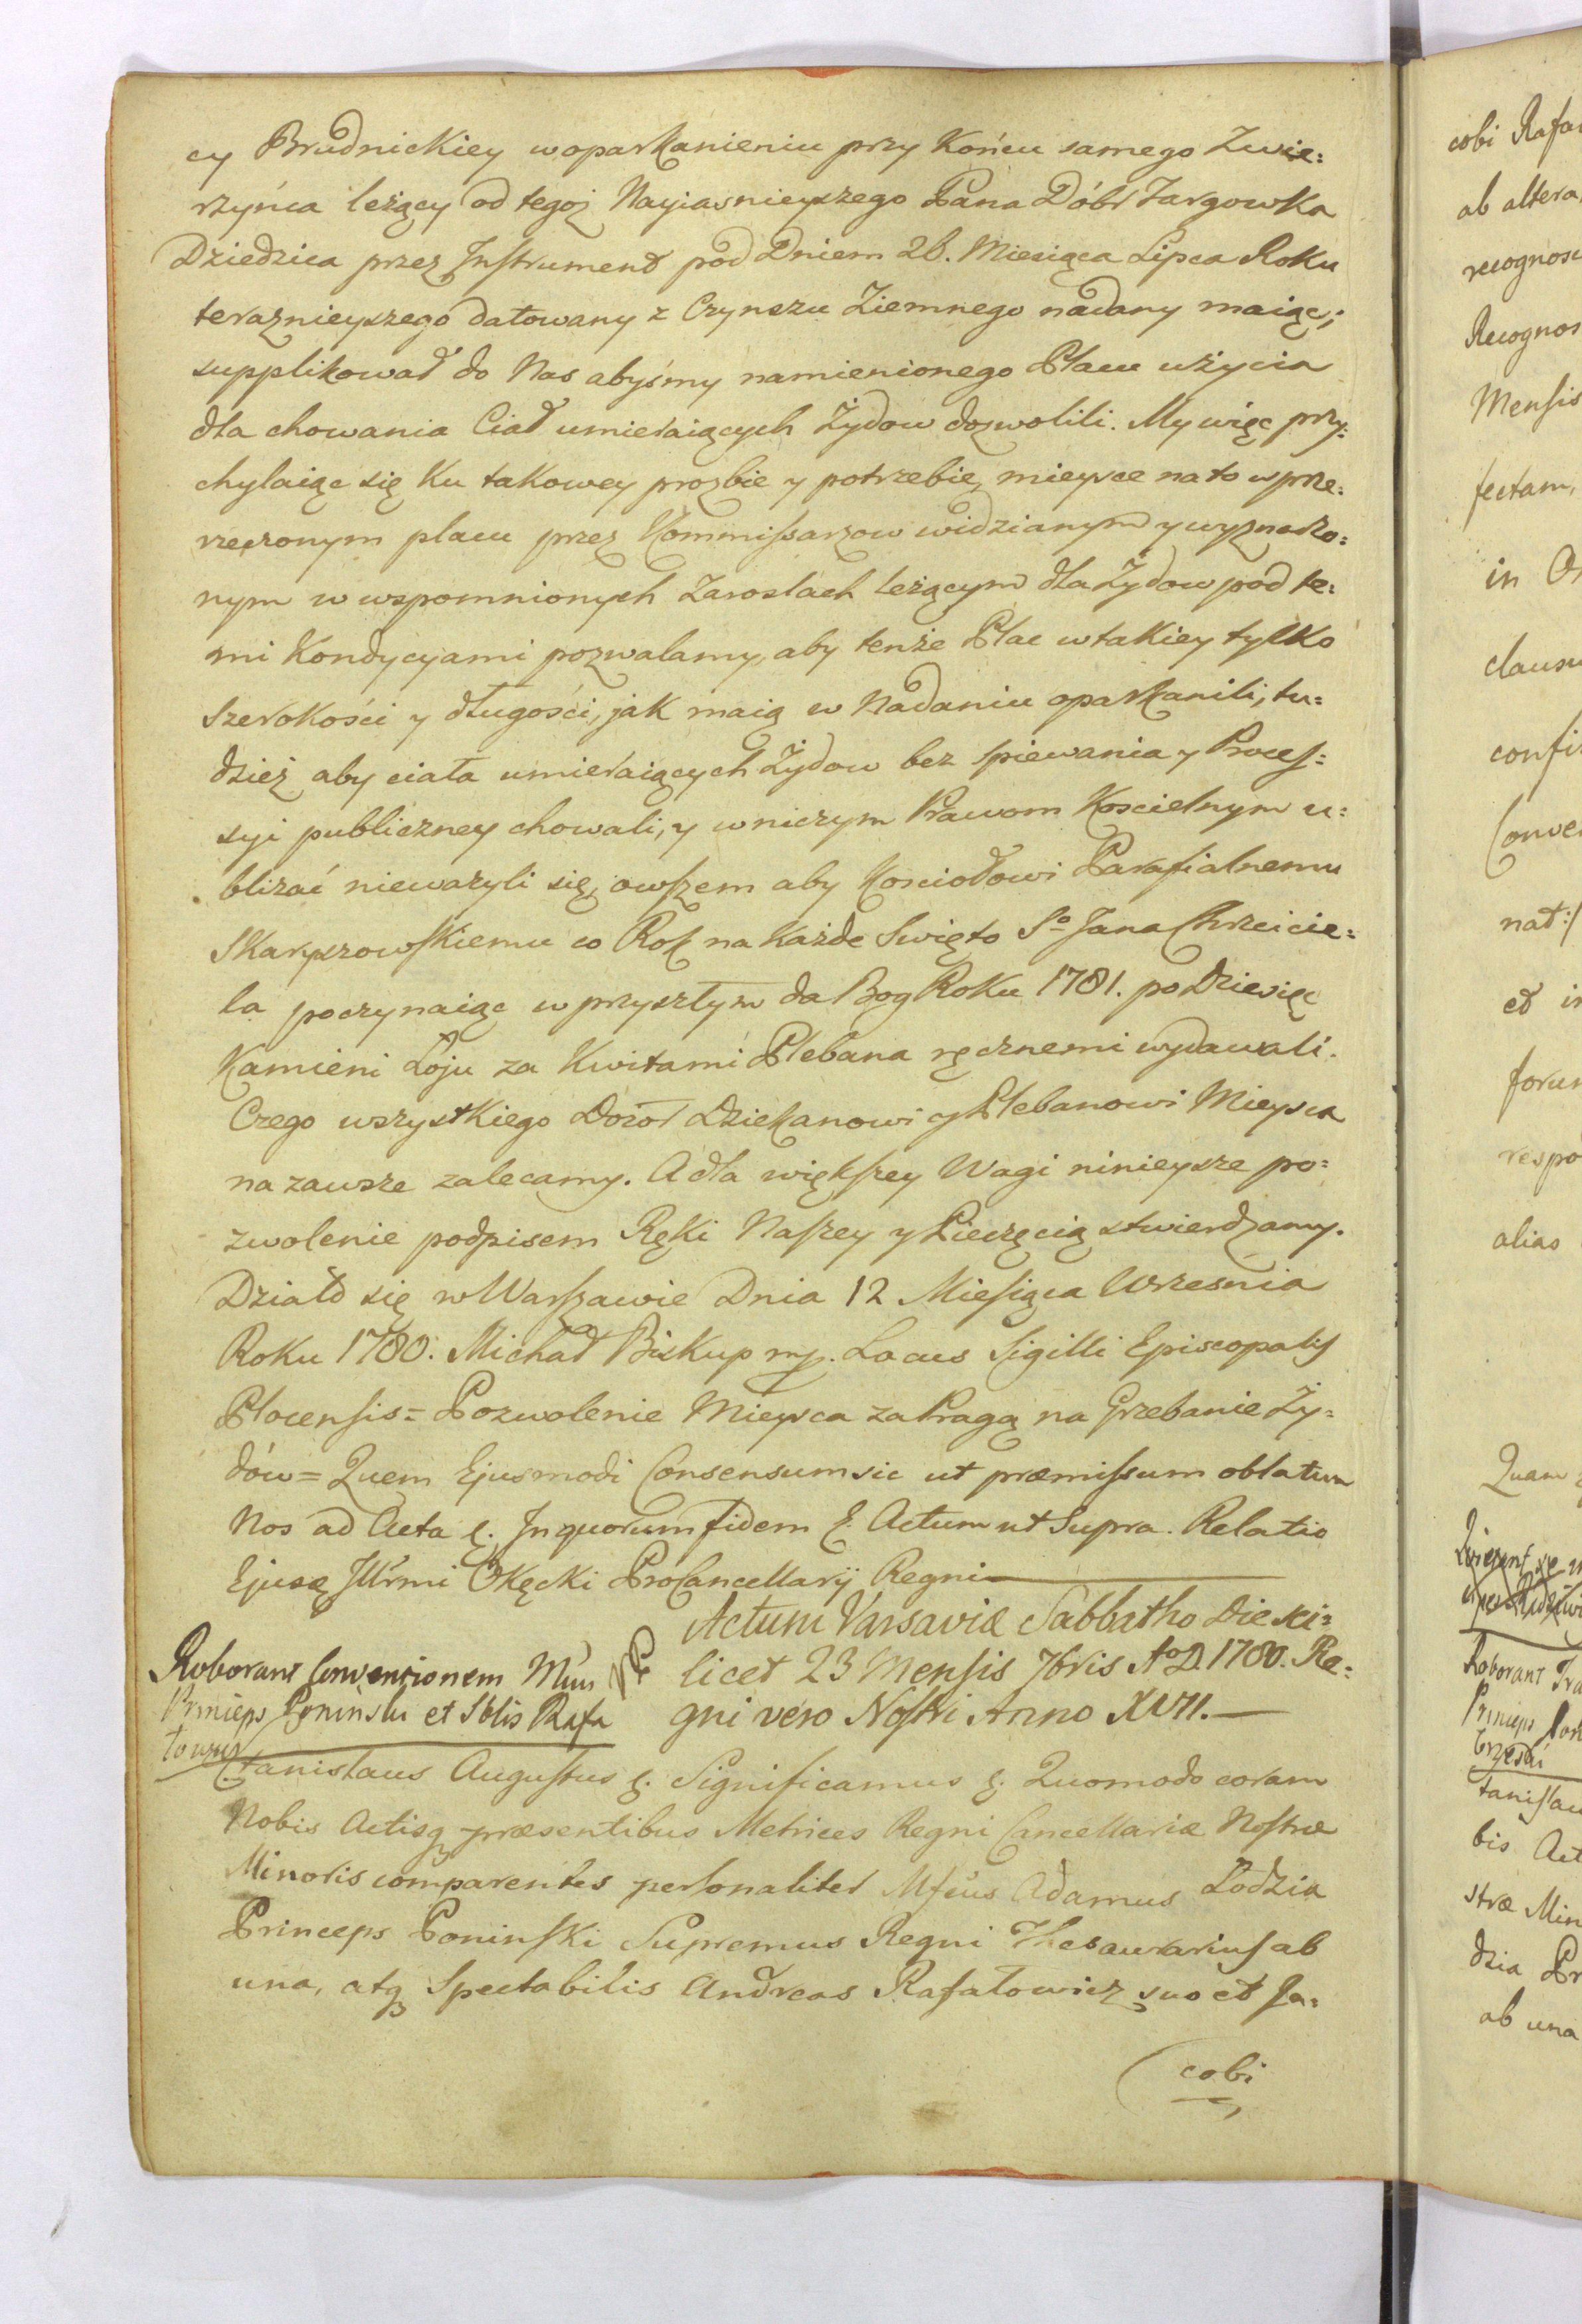 cy Brudnickiey w oparkanieniu przy Końcu samego Zwie:
rzyńca leżący od tegoż Nayiasnieyszego Pana Dóbr Targowka
Dziedzica przez Instrument pod Dniem 26. Miesiąca Lipca Roku
teraznieyszego datowany z Czynszu Ziemnego nadany maiąc;
supplikował do Nas abyśmy namienionego Placu użycia
dla chowania Ciał umieraiących Żydow dozwolili. My więc przy:
chylaiąc się Ku takowey prozbie y potrzebie, mieysce na to w prze:
rzeczonym placu przez Kommissarzow widzianym y wyznaczo:
nym w wspomnionych Zaroslach leżącym dla Żydow pod te:
mi Kondycyami pozwalamy, aby tenże Plac w takiey tylko
szerokości y długości, jak maią w Nadaniu oparkanili, tu:
dzież aby ciała umieraiących Żydow bez spiewania y Proces:
syi publiczney chowali, y w niczym Prawom Koscielnym u:
bliżać nieważyli się, owszem aby Kosciołowi Parafialnemu
Skaryszowskiemu co Rok na każde Swięto So Jana Chrzcicie:
la poczynaiąc w przyszłym da Bog Roku 1781. po Dziesięć
Kamieni Łoju za Kwitami Plebana ręcznemi wydawali.
Czego wszystkiego Dozor Dziekanowi y Plebanowi Mieysca
na zawsze zalecamy. A dla większey Wagi ninieysze po:
zwolenie podpisem Ręki Naszey y Pieczęcią stwierdzamy.
Działo się w Warszawie Dnia 12 Miesiąca Wrzesnia
Roku 1780. Michał Biskup mp. Locus Sigilli Episcopalis
Plocensis = Pozwolenie Mieysca za Pragą na Grzebanie Ży:
dów = Quem Ejusmodi Consensum sic ut præmissum oblatum
Nos ad Acta &. In quorum fidem &. Actum ut Supra. Relatio
Ejusq Illrmi Okęcki ProCancellarij Regni
Actum Varsaviæ Sabbatho Die sci:
licet 23 Mensis 7bris Ao D. 1780. Re:
gni vero Nostri Anno XVII.
Roborant Conventionem
Princeps Poninski et Sblis Rafa
towicz
Stanislaus Augustus &. Significamus &. Quomodo coram
Nobis Actisq præsentibus Metrices Regni Cancellariæ Nostræ
Minoris comparentes personaliter Mfcus Adamus Łodzia
Princeps Poninski Supremus Regni Thesaurarius ab
una, atq Spectabilis Andreas Rafałowicz suo et Ja:
cobi
cobi
ab altera
Mensis
fectam,
in
nat:
et
alias
Quam
Roborant
Princeps
bis
stræ Min
dzia
ab una